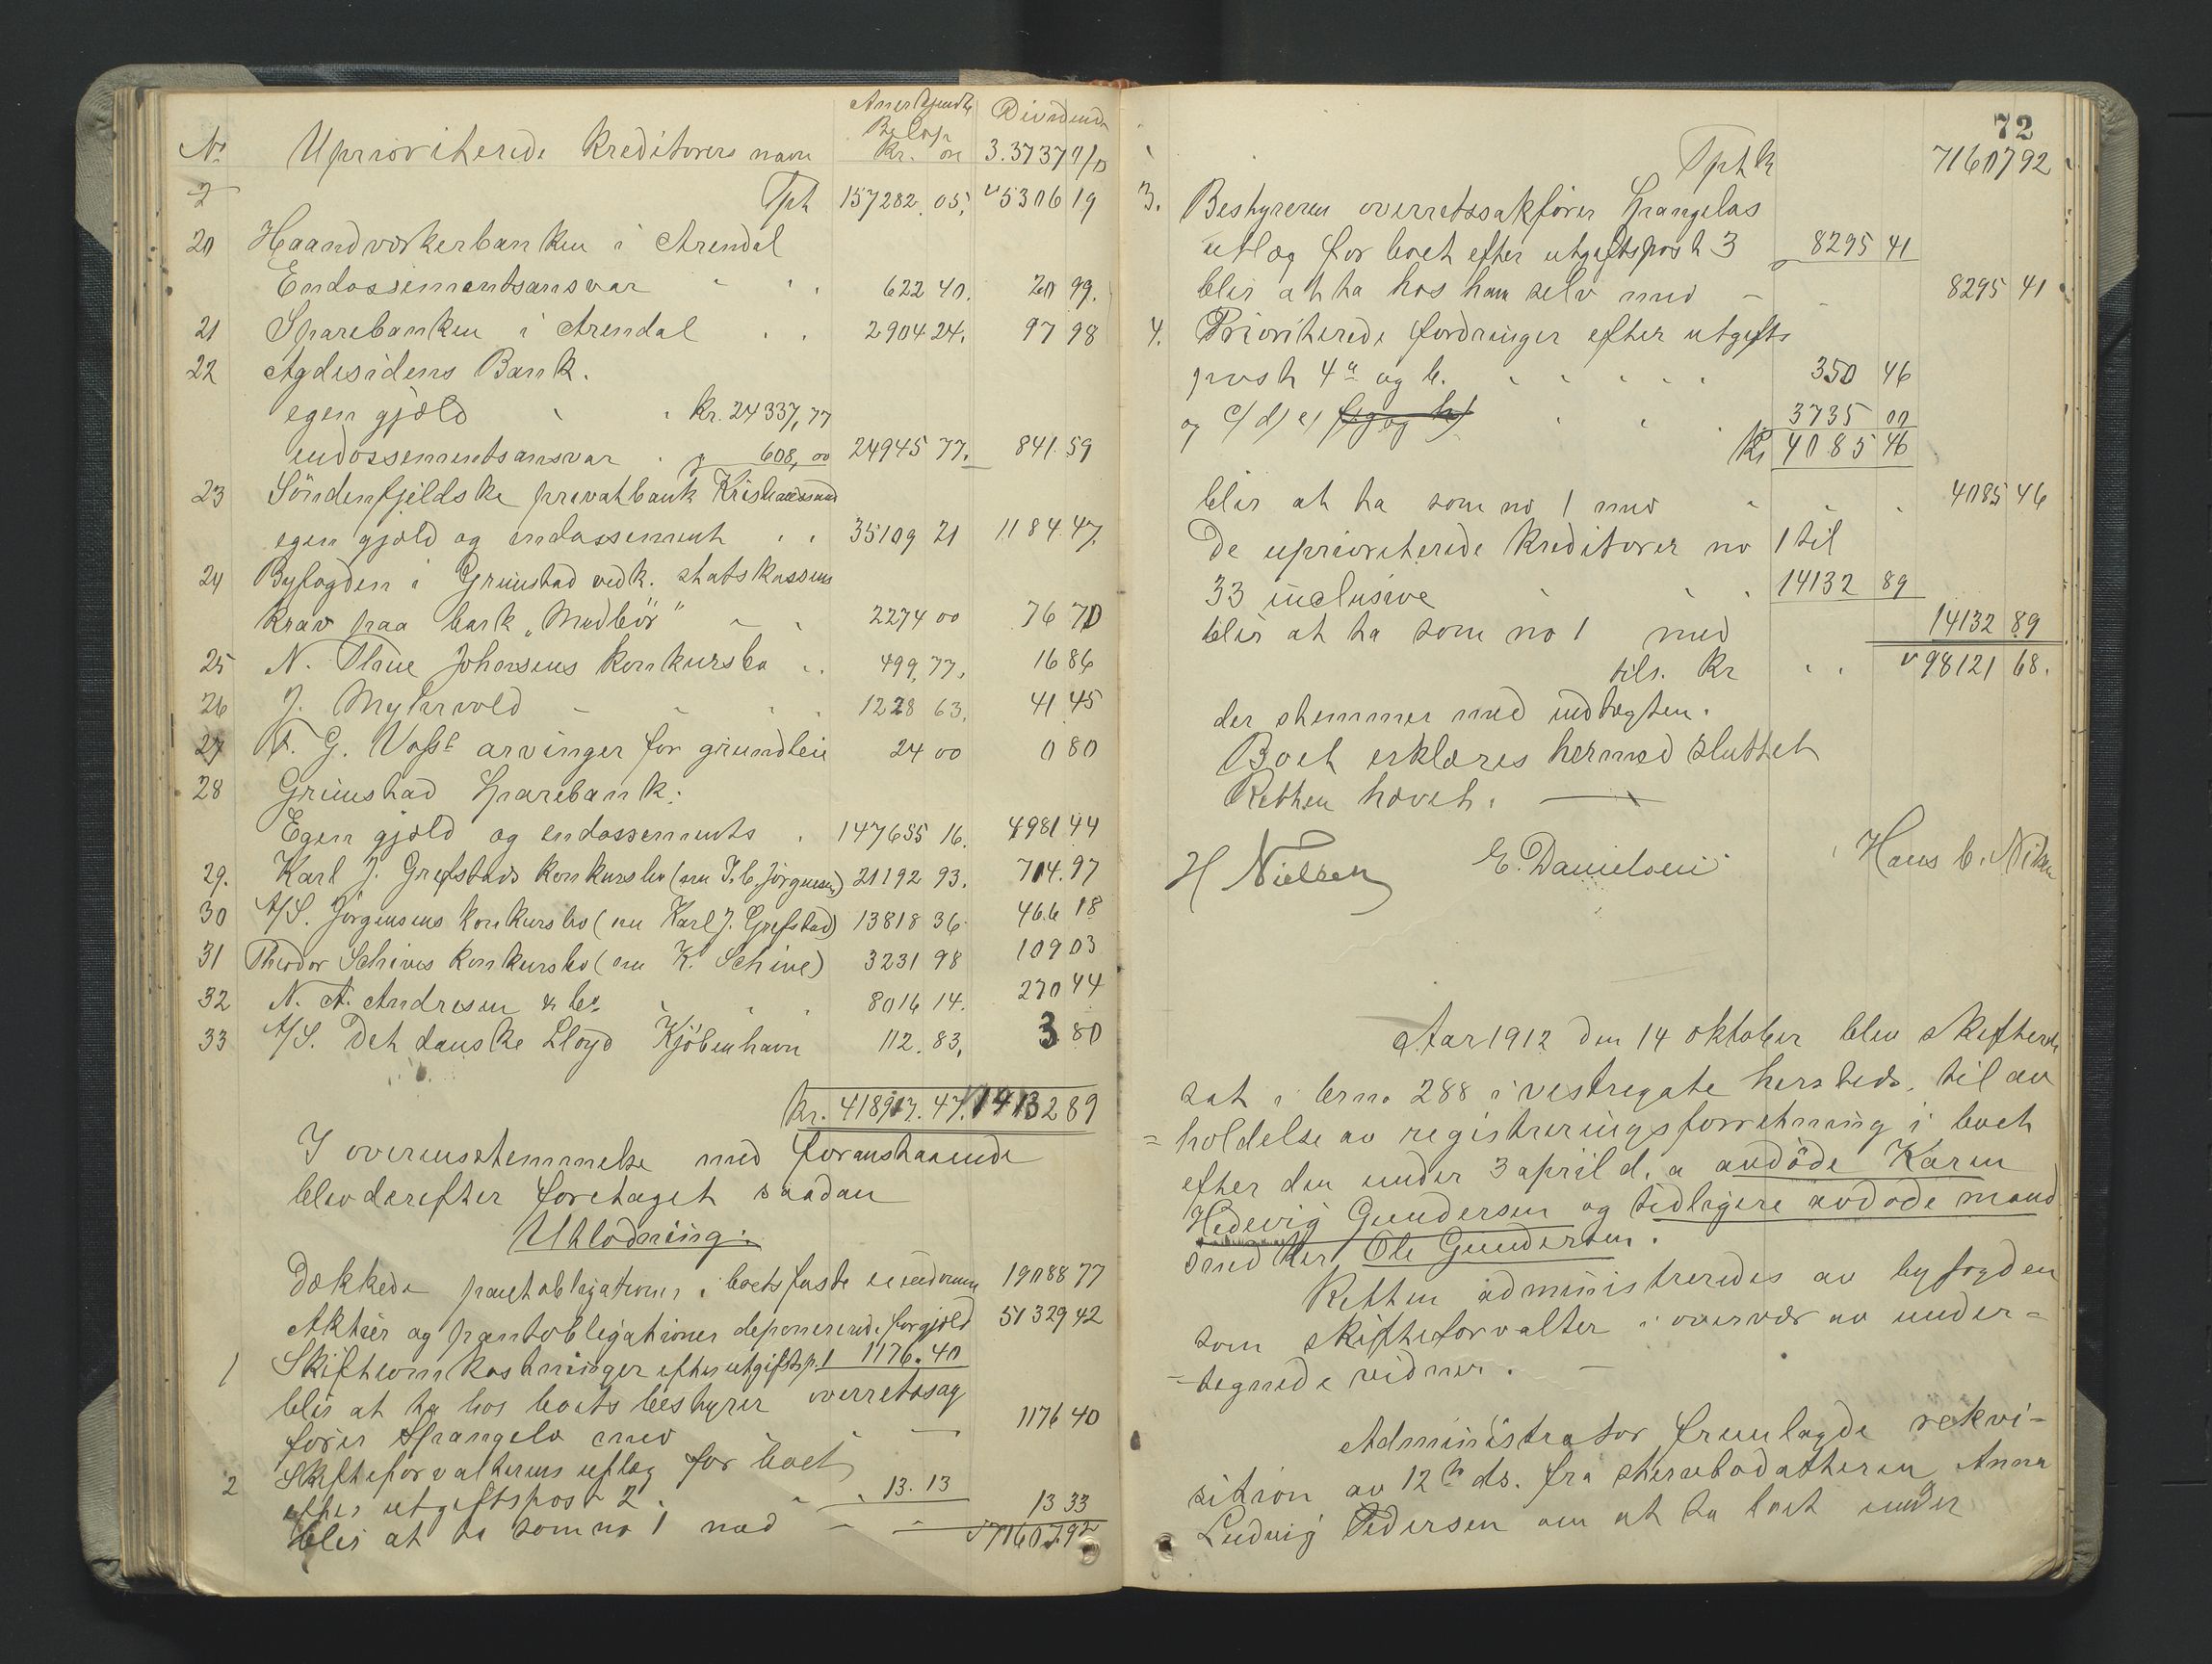 No Uprioriterede kreditorers navn Anerkjendte Beløp Kr. øre Dividende 3.3737 %
Tph 157282 05. 5306 19
20 Haandverkerbanken i Arendal
Endossementsansvar 622 40. 20 99.
21 Sparebanken i Arendal 2904 24. 97 98
22 Agdesidens Bank.
egen gjæld Kr. 24337,77
endossementsansvar " 608,00 24945 77. 841.59
23 Söndenfjeldske privatbank Kristiansand
egen gjæld og endossement 35109 21 1184.47.
24 Byfogden i Grimstad vedk. statskassens
krav paa bark „Medbör" 2274 00 76 70
25 N. Thue Johnsens konkursbo 499.77. 16 86
26 J. Myhrvold 1228 63. 41 45
27 G. Voss's arvinger for grundleie 24 00 0 80
28 Grimstad Sparebank:
Egen gjæld og endossements 147655 16. 4981 44
29. Karl J. Grefstads konkursbo (nu J. C. Jörgensen) 21192 93. 714.97
30 A/S. Jörgensens konkursbo (nu Karl J. Grefstad) 13818 36. 466 18
31 Theodor Schives konkursbo (nu K. Schive) 3231 98 109 03
32 N. A. Andresen & Co. 8016 14. 270 44
33 A/S. Det danske Lloyd Kjöbenhavn 112.83. 3 80
Kr. 418917.47. 14132 89
I overensstemmelse med foranstaaende
blev derefter foretaget saadan
Utlodning:
Dækkede pantobligationer i boets faste eiendomme 19088 77
Aktier og pantobligationer deponerende for gjæld 51329 42
1 Skifteomkostninger efter utgiftsp. 1 1176.40
blir at ta hos boets bestyrer overretssag
fører Spangelo med 1176 40
2 Skifteforvalterens utlæg for boet
efter utgiftspost 2. 13.13
blir at ta som no 1 med 13 33
71607.92
72
Tph kr 71607 92
3. Bestyreren overretssakfører Spangelos
utlæg for boet efter utgiftspost 3 8295 41
blir at ta hos ham selv med 8295 41
4. Prioriterede fordringer efter utgifts
post 4a og b. 350 46
og c/ d/ e/ f/ g og h/ 3735 00
Kr 4085 46
blir at ta som no 1 med 4085 46
De uprioriterede kreditorer no 1 til
33 inclusive 14132 89
blir at ta som no 1 med 14132 89
tils. Kr 98121 68.
der stemmer med indtægten.
Boet erklæres hermed sluttet
Retten hævet.
H Nielsen E. Danielsen Hans C. Nilsen
Aar 1912 den 14 oktober blev skifteret
sat i br.no. 288 i vestregate hersteds til av
=holdelse av registreringsforretning i boet
efter den under 3 april d. a avdöde Karen
Hedevig Gundersen og tidligere avdöde mand
Ole Gundersen.
Retten administreredes av byfogden
som skifteforvalter i overvær av under=
=tegnede vidner.
Administrator fremlagde rekvi-
sition av 12te ds. fra stervbodatteren Anna
Ludvig Pedersen om at ta boet under